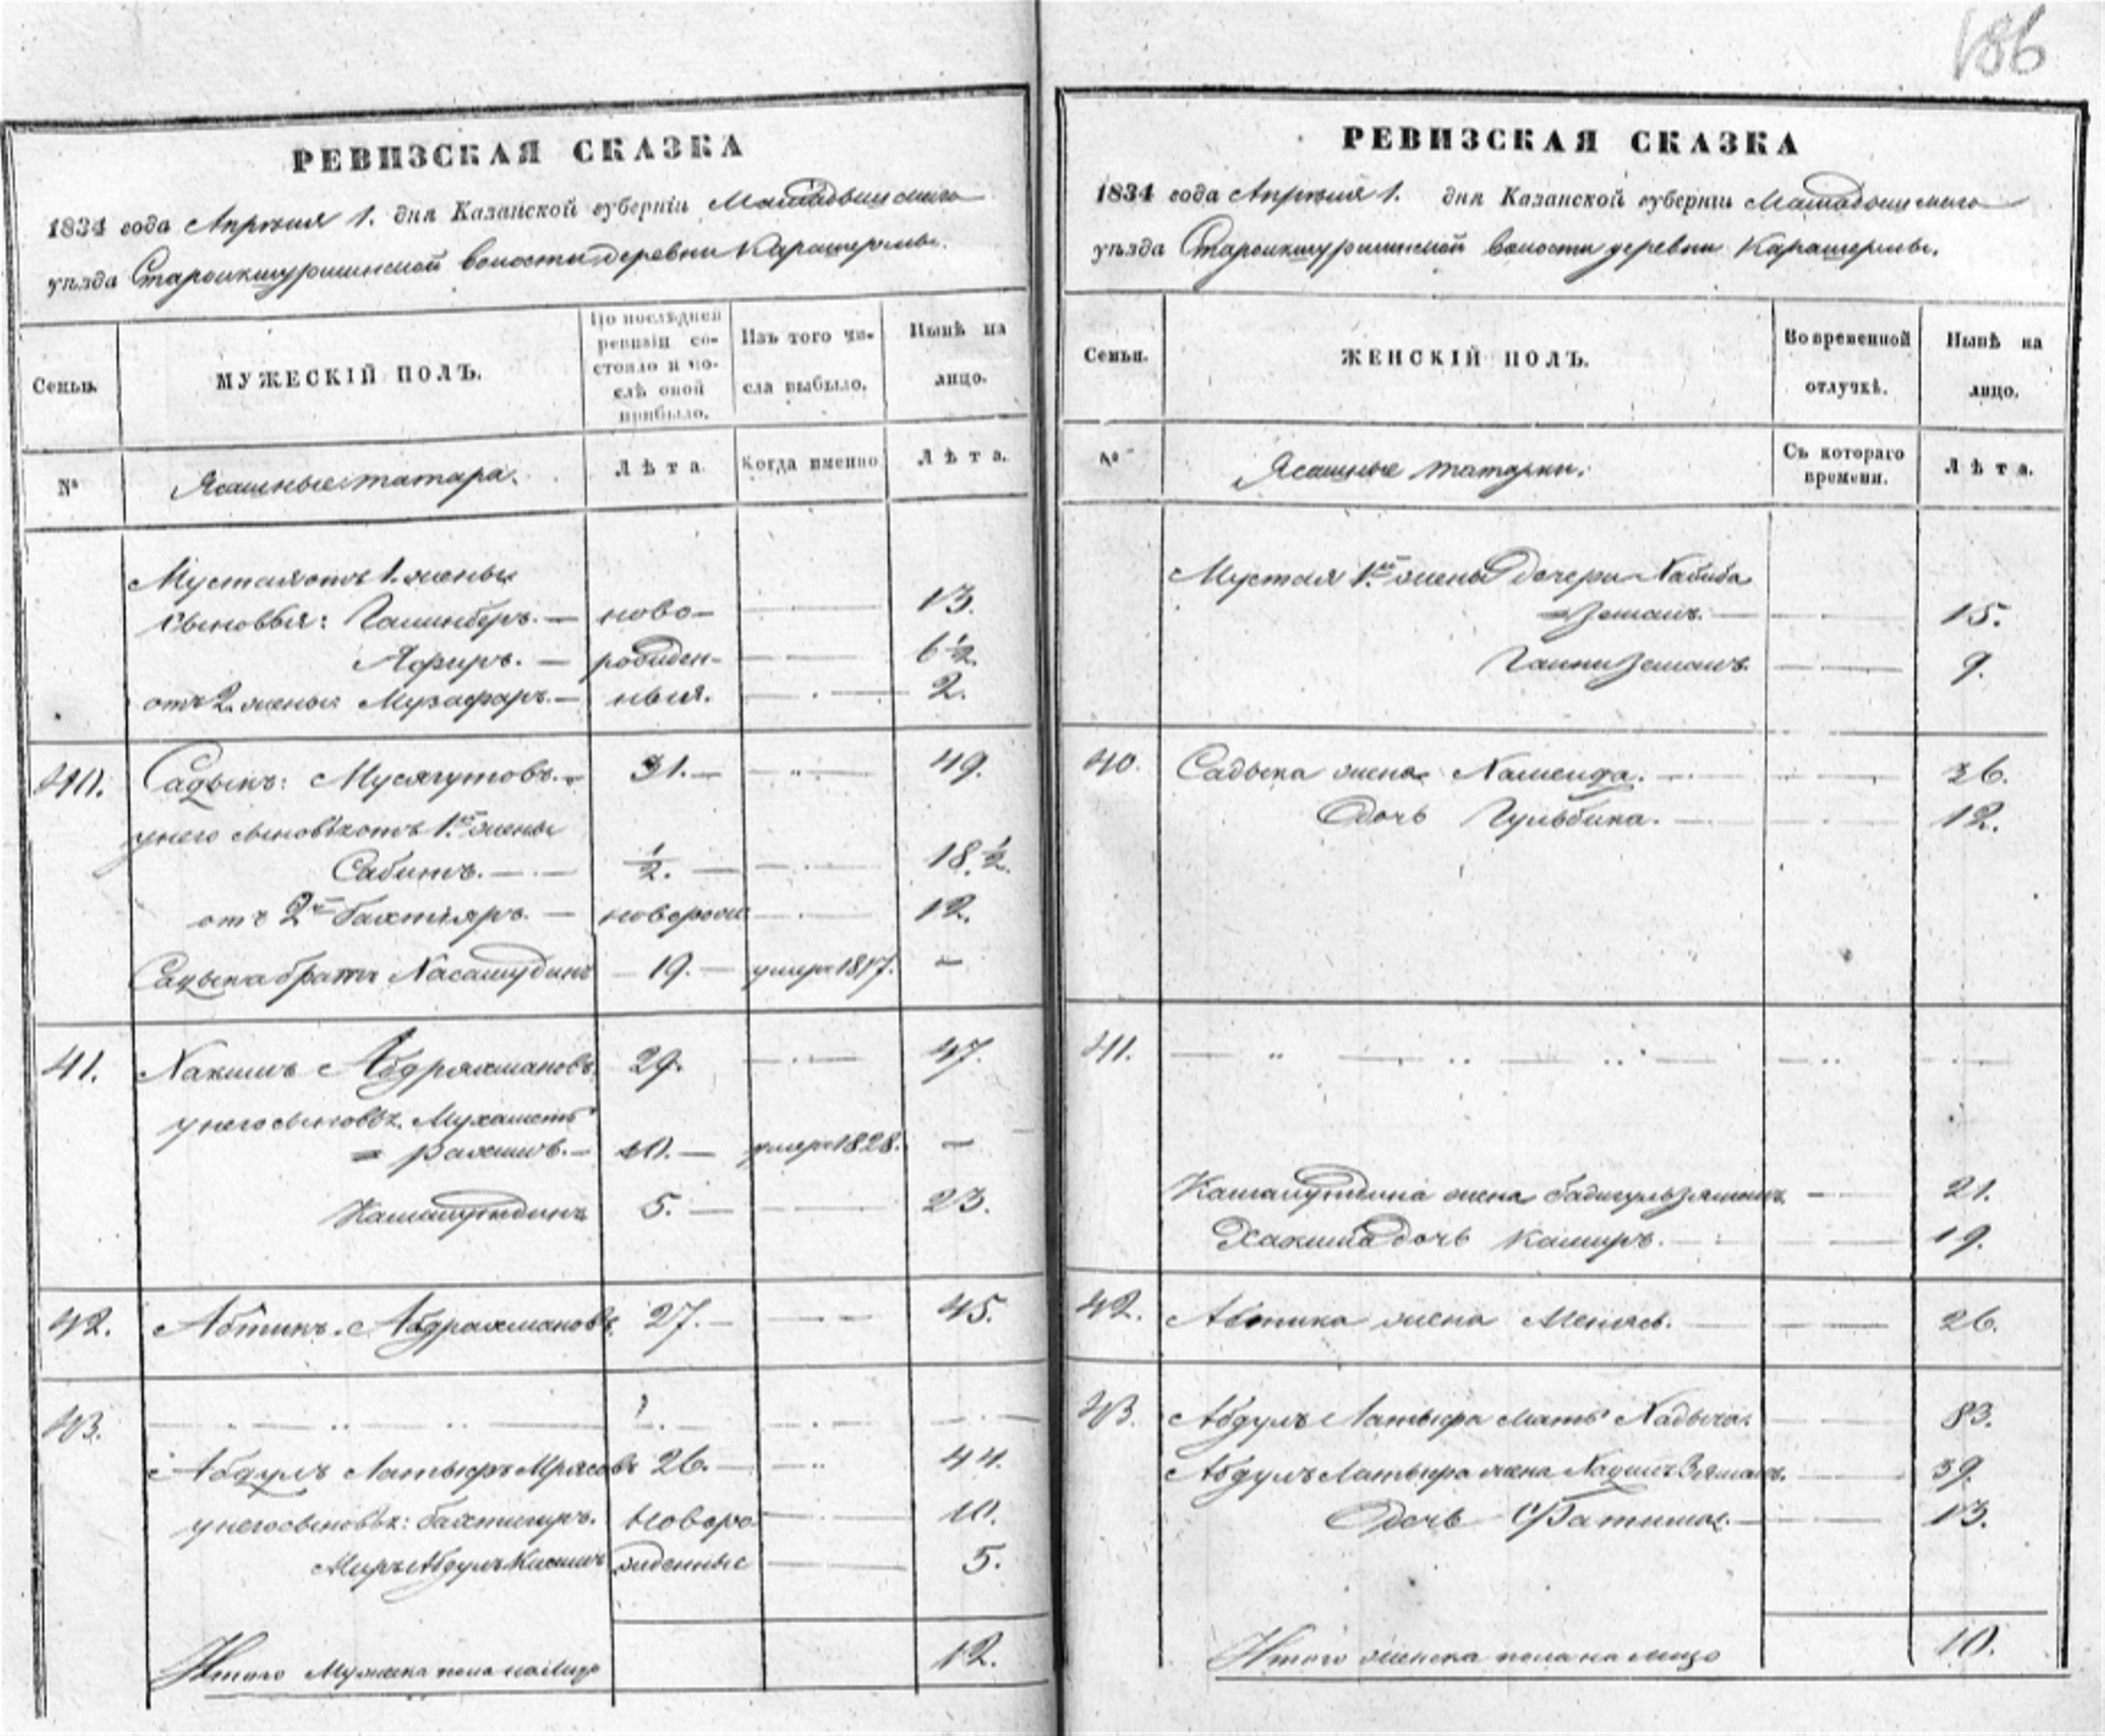 186
РЕВИЗСКАЯ СКАЗКА
1834 года Апреля 1. дня Казанской губерніи Мамадышскаго
уѣзда Староикшурминской волости деревни Карашермы.
Семьи.
МУЖЕСКІЙ ПОЛЪ.
По послѣдней ревизіи состояло и послѣ оной прибыло.
Изъ того числа выбыло.
Нынѣ на лицо.
№
Ясашные татара.
Лѣта
Когда именно
Лѣта.
Мустая отъ 1. жены
сыновья: — ново- 13.
Афиръ. — рожден- 6 1/2.
отъ 2. жены Музафаръ. — ныя. 2.
40. Садыкъ: Мусягутовъ. 31. — 49.
у него сыновья отъ 1й жены
Сабитъ. — 1/2. — 18 1/2.
отъ 2й Бахтіяръ. — новорож 12.
Садыка братъ — 19. — умеръ 1817. —
41. Хакимъ Абдряхмановъ. 29. 47.
у него сыновья Мухаметъ
= Рахимъ. — 10. — умеръ 1828. —
Камалутдинъ 5. — 23.
42. Абтикъ. Абдрахмановъ. 27. — 45.
43.
Абдулъ Латыфъ Мрясовъ 26. — 44.
у него сыновья: Бахтигиръ. новоро 10.
жденные 5.
Итого Мужеска пола на лицо 12.
РЕВИЗСКАЯ СКАЗКА
1834 года Апреля 1. дня Казанской губерніи Мамадышскаго
уѣзда Староикшурминской волости деревни Карашермы.
Семьи.
ЖЕНСКІЙ ПОЛЪ.
Во временной отлучкѣ.
Нынѣ на лицо.
№
Ясашные татарки.
Съ котораго времени.
Лѣта.
Мустая 1й жены дочери Хабиба
= Земалъ. — 15.
9.
40. Садыка жена 36.
дочь Гульбика. — 12.
41.
Камалутдина жена 21.
Хакима дочь 19.
42. Абтика жена 26.
43. Абдулъ Латыфа мать Хадыча. 83.
Абдулъ Латыфа жена 39.
дочь Фатима. — 13.
Итого женска пола на лицо 10.